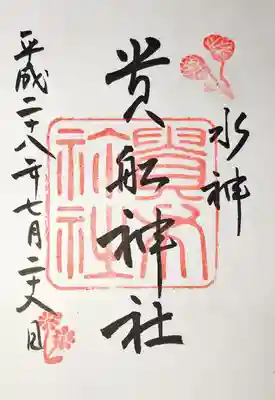 水神
貴船神社
平成二十八年七月二十八日